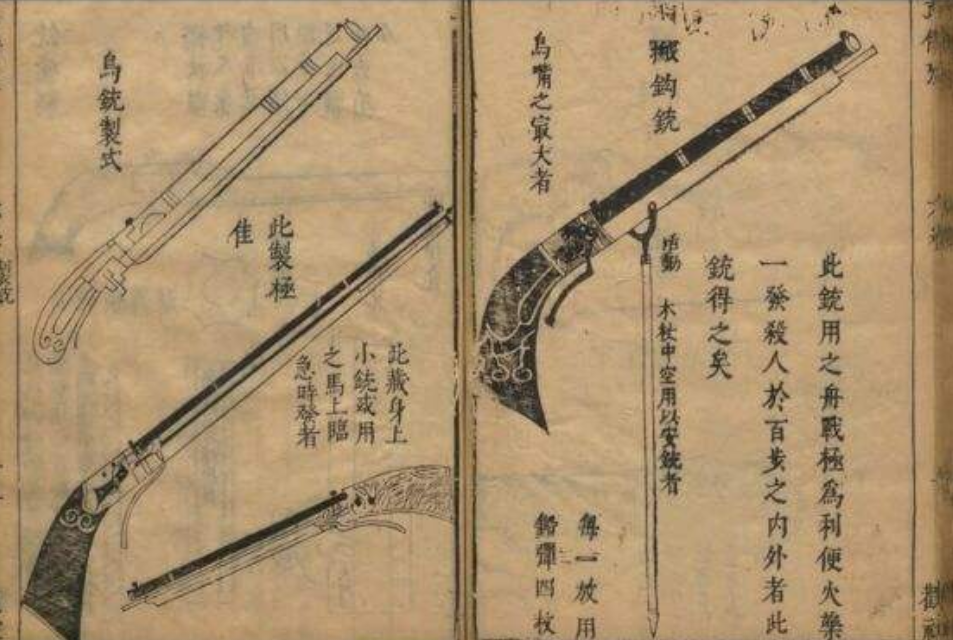 此銃用之舟戰極為利便火藥
一發殺人於百步之內外者此
銃得之矣
鈎銃
活動
木杖中空用以安銃者
每一放用
鉛彈四枚
鳥嘴之㝡大者
此藏身上
小銃或用
之馬上臨
急時發者
此製極
佳
鳥銃製式